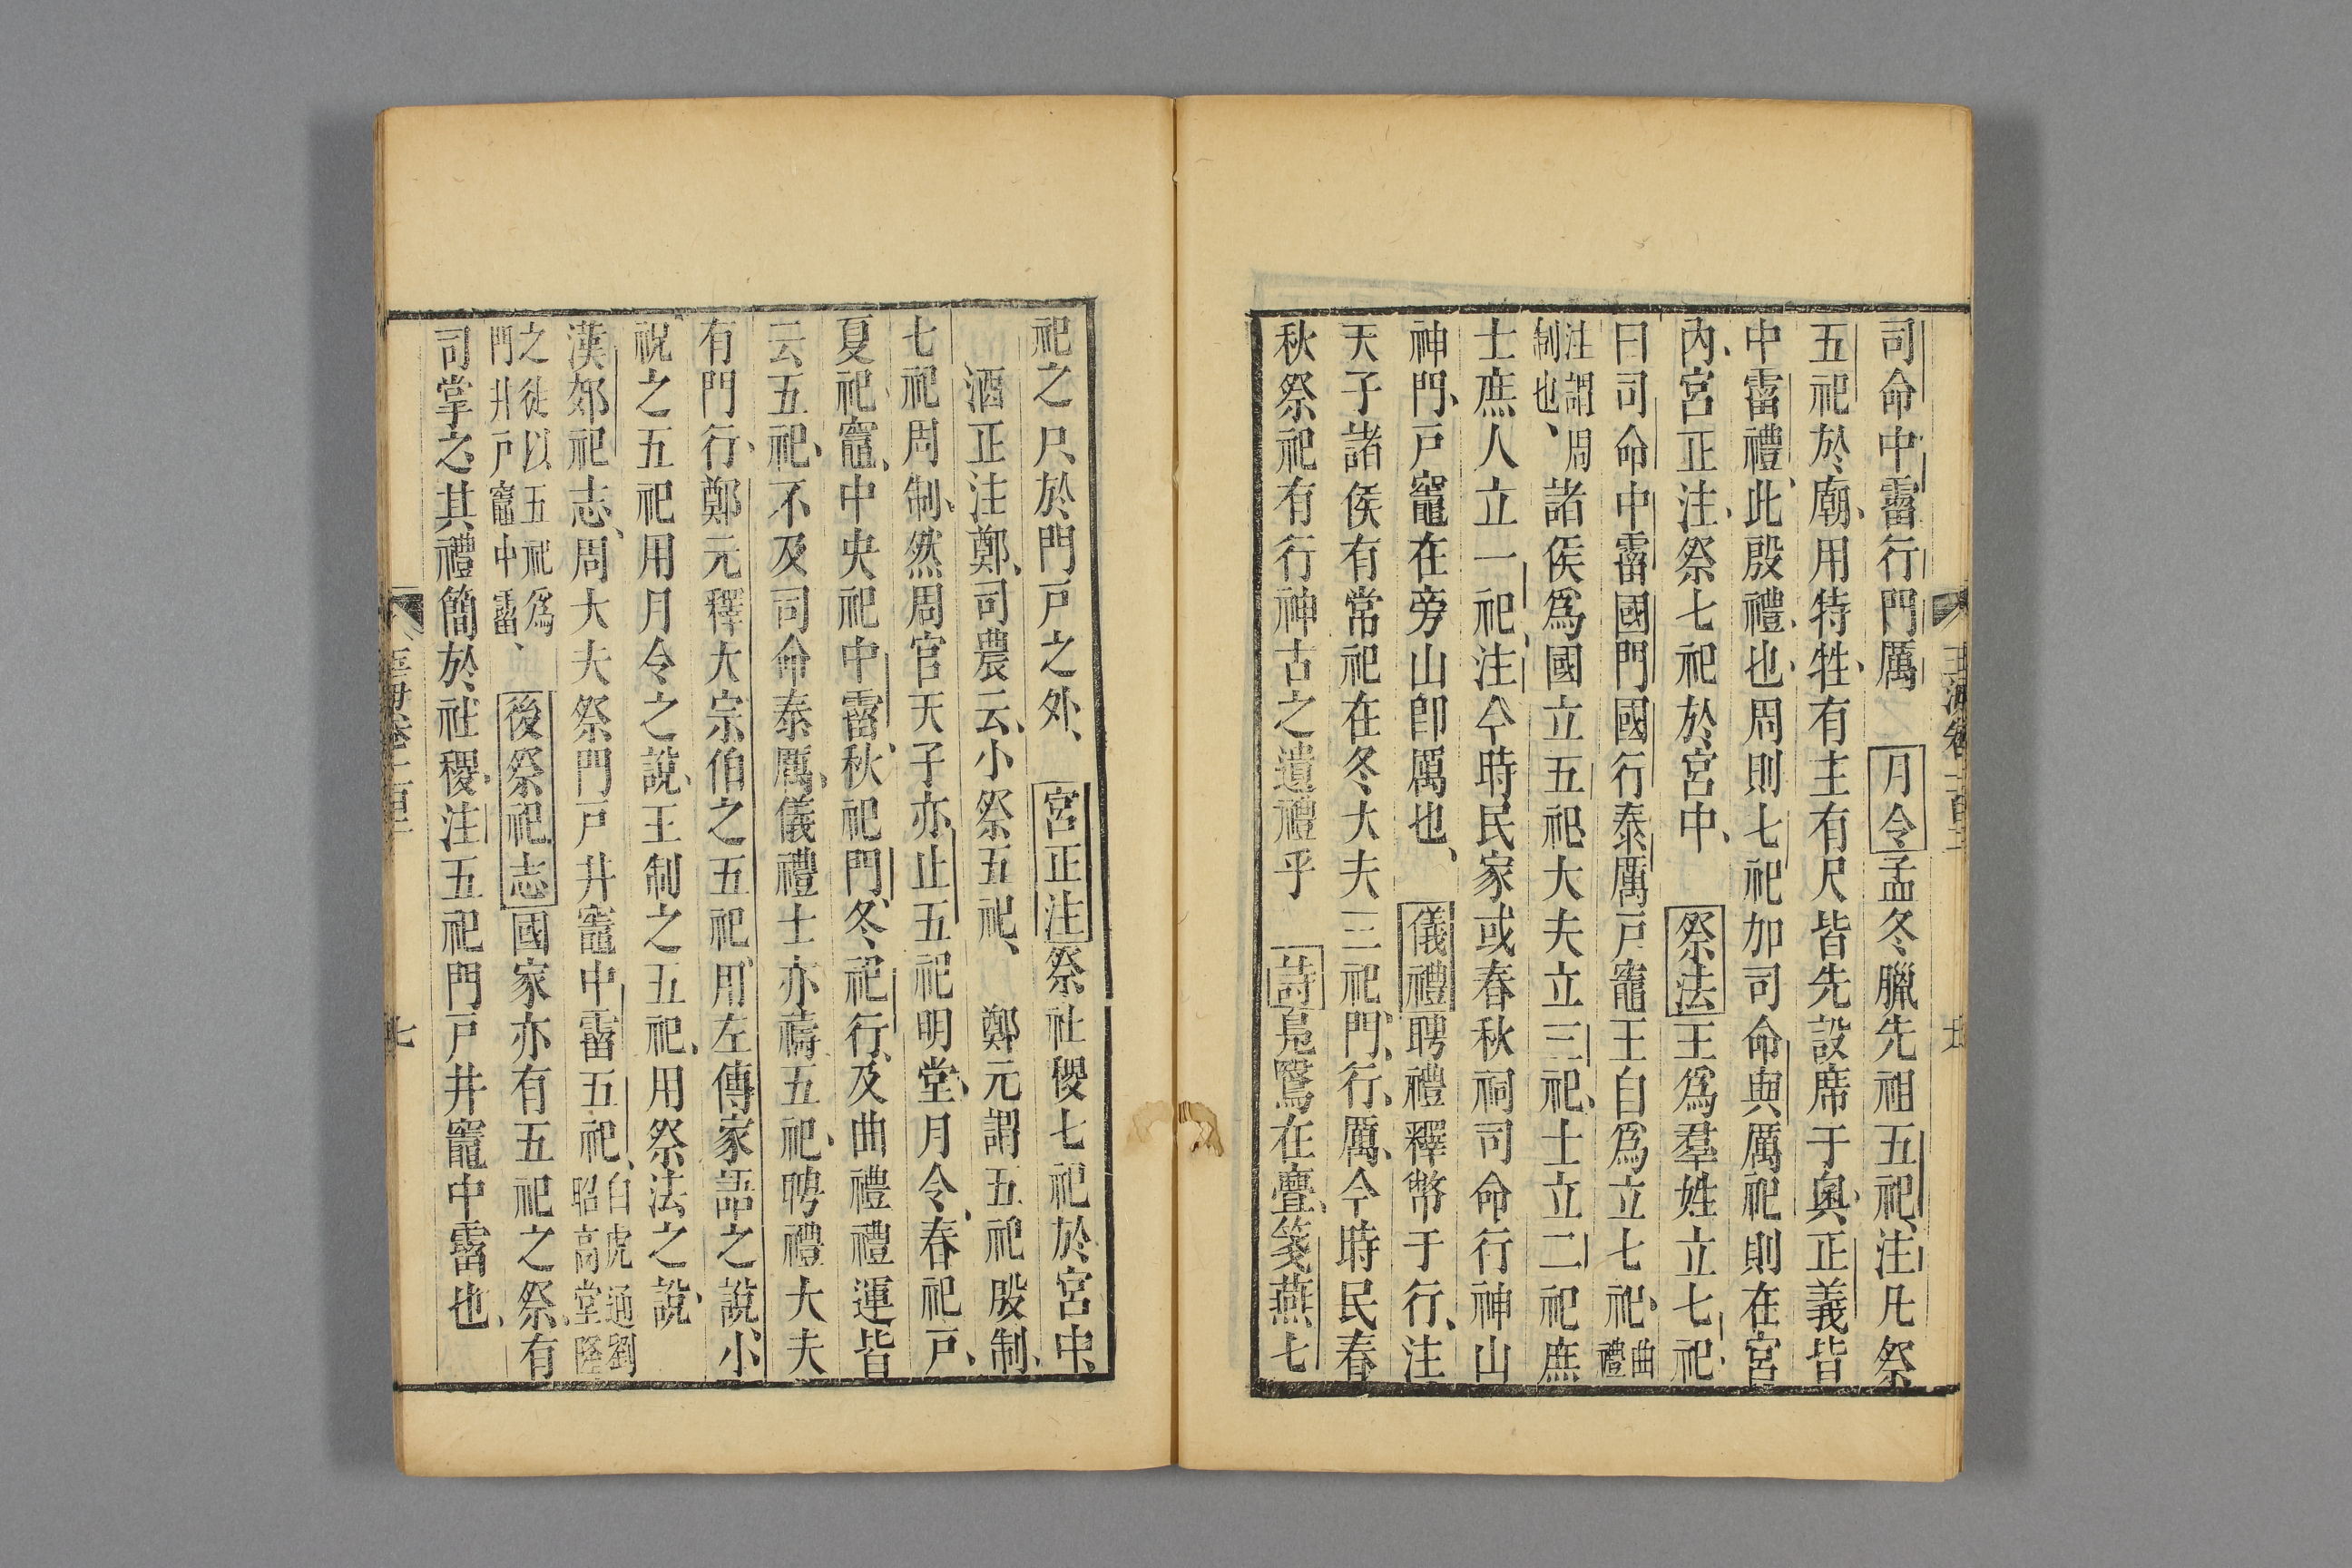 司命中霤行門厲　月令孟冬臘先祖五祀、注凡祭
五祀於廟、用特牲、有主有尸、皆先設席于奧、正義皆
中霤禮、此殷禮也、周則七祀加司命與厲祀則在宮
內、宮正注、祭七祀於宮中、　祭法王爲羣姓立七祀、
曰司命中霤國門國行泰厲戸竈王自爲立七祀、曲禮
注謂周制也、諸侯爲國立五祀大夫立三祀、士立二祀庶
士庶人立一祀、注今時民家或春秋祠司命行神山
神門、戸竈在旁山卽厲也、　儀禮聘禮釋幣于行、注
天子諸侯有常祀在冬大夫三祀門、行、厲、今時民春
秋祭祀有行神古之遺禮乎　詩鳧鷖在亹、箋燕七
祀之尸、於門戸之外、　宮正注祭社稷七祀於宮中、
酒正注鄭、司農云、小祭五祀、　鄭元謂五祀殷制、
七祀周制、然周官天子亦止五祀明堂、月令、春祀戸、
夏祀竈、中央祀中霤、秋祀門、冬祀行、及曲禮禮運皆
云五祀、不及司命泰厲、儀禮士亦禱五祀、聘禮大夫
有門行、鄭元釋大宗伯之五祀、用左傳家語之說、小
祝之五祀用月令之說、王制之五祀、用祭法之說、
漢郊祀志、周大夫祭門戸井竈中霤五祀、白虎通劉昭高堂隆
之徒以五祀爲門井戸竈中霤、　後祭祀志國家亦有五祀之祭、有
司掌之其禮簡於社稷、注五祀門戸井竈中霤也、
七